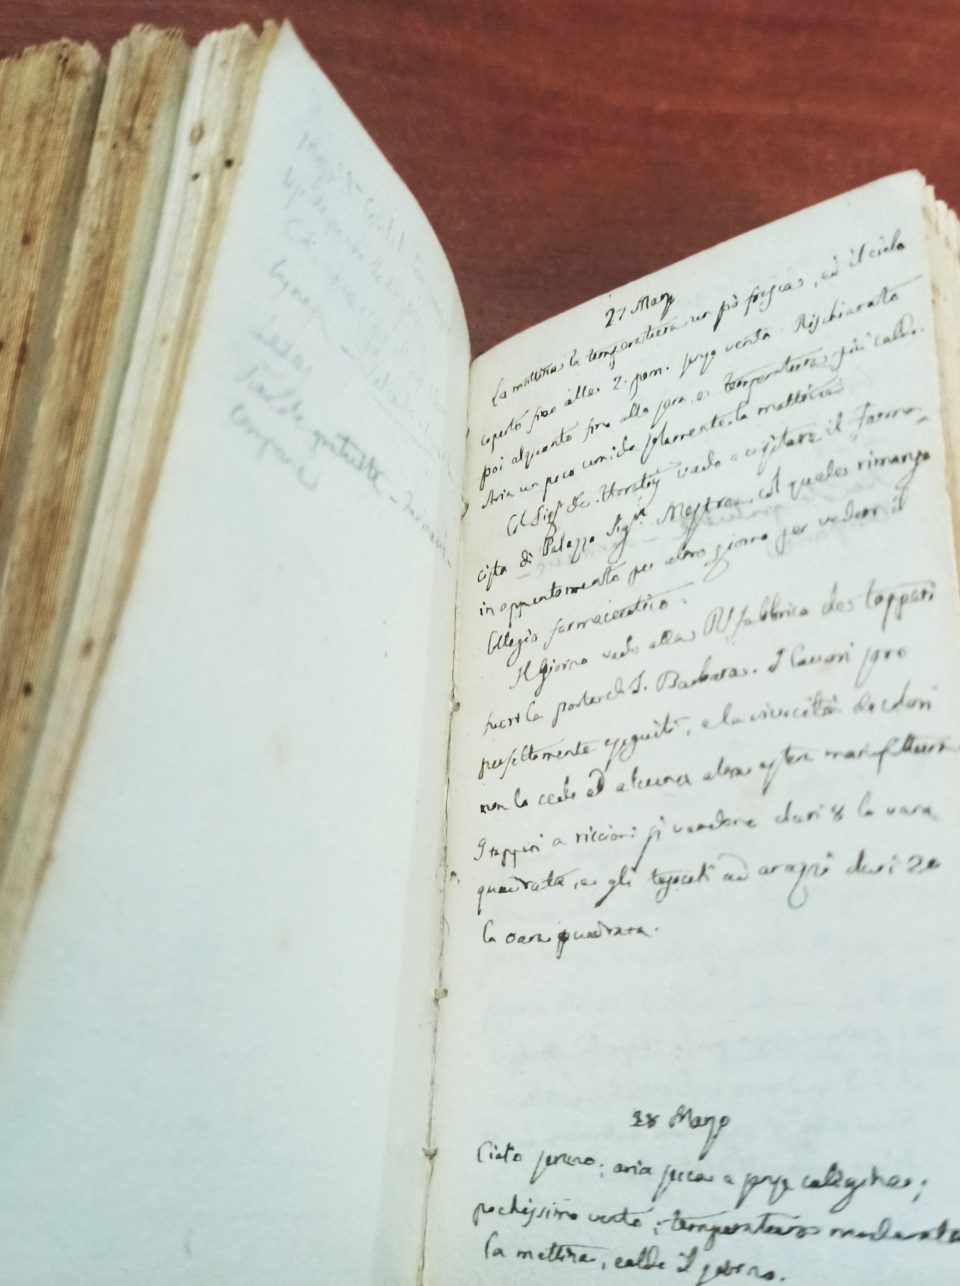 27 Marzo
La mattina la temperatura un pò fresca, ed il cielo
coperto fino alle 2. pom. senza vento. Rischiarato
poi alquanto fino alla sera, e temperatura più calda.
Aria un poco umida solamente la mattina
Col Sig. de vado a visitare il Farma-
cista di Palazzo Sig.r Mestre, col quale rimango
in appuntamento per altro giorno per vedere il
Collegio farmaceutico.
Il Giorno vado alla Rl fabbrica de tappeti
fuori la porta di S. Barbara. I lavori sono
perfettamente eseguiti, e la vivacità de colori
non la cede ad alcuna altra estera manifattura
I tappeti a riccioni si vendono duri 8 la vara
quadrata, e gli tessuti ad arazzi duri 20
la vara quadrata.
28 Marzo
Cielo sereno; aria secca e senza caligine;
pochissimo vento; temperatura moderata
la mattina, calda il giorno.